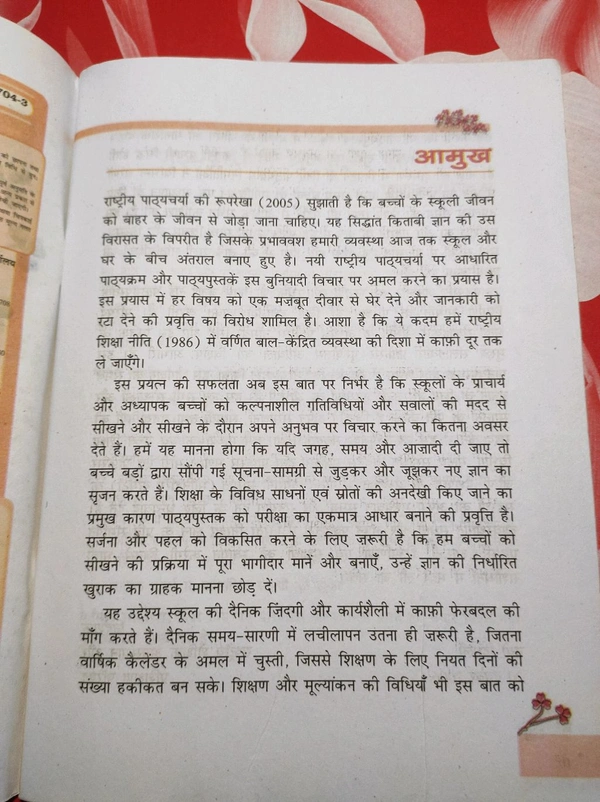 704-3
आमुख
राष्ट्रीय पाठ्यचर्या की रूपरेखा (2005) सुझाती है कि बच्चों के स्कूली जीवन
को बाहर के जीवन से जोड़ा जाना चाहिए। यह सिद्धांत किताबी ज्ञान की उस
विरासत के विपरीत है जिसके प्रभाववश हमारी व्यवस्था आज तक स्कूल और
घर के बीच अंतराल बनाए हुए है। नयी राष्ट्रीय पाठ्यचर्या पर आधारित
पाठ्यक्रम और पाठ्यपुस्तकें इस बुनियादी विचार पर अमल करने का प्रयास है।
इस प्रयास में हर विषय को एक मज़बूत दीवार से घेर देने और जानकारी को
रटा देने की प्रवृत्ति का विरोध शामिल है। आशा है कि ये कदम हमें राष्ट्रीय
शिक्षा नीति (1986) में वर्णित बाल-केंद्रित व्यवस्था की दिशा में काफ़ी दूर तक
ले जाएँगे।
इस प्रयत्न की सफलता अब इस बात पर निर्भर है कि स्कूलों के प्राचार्य
और अध्यापक बच्चों को कल्पनाशील गतिविधियों और सवालों की मदद से
सीखने और सीखने के दौरान अपने अनुभव पर विचार करने का कितना अवसर
देते हैं। हमें यह मानना होगा कि यदि जगह, समय और आज़ादी दी जाए तो
बच्चे बड़ों द्वारा सौंपी गई सूचना-सामग्री से जुड़कर और जूझकर नए ज्ञान का
सृजन करते हैं। शिक्षा के विविध साधनों एवं स्रोतों की अनदेखी किए जाने का
प्रमुख कारण पाठ्यपुस्तक को परीक्षा का एकमात्र आधार बनाने की प्रवृत्ति है।
सर्जना और पहल को विकसित करने के लिए ज़रूरी है कि हम बच्चों को
सीखने की प्रक्रिया में पूरा भागीदार मानें और बनाएँ, उन्हें ज्ञान की निर्धारित
खुराक का ग्राहक मानना छोड़ दें।
यह उद्देश्य स्कूल की दैनिक ज़िंदगी और कार्यशैली में काफ़ी फेरबदल की
माँग करते हैं। दैनिक समय-सारणी में लचीलापन उतना ही ज़रूरी है, जितना
वार्षिक कैलेंडर के अमल में चुस्ती, जिससे शिक्षण के लिए नियत दिनों की
संख्या हकीकत बन सके। शिक्षण और मूल्यांकन की विधियाँ भी इस बात को